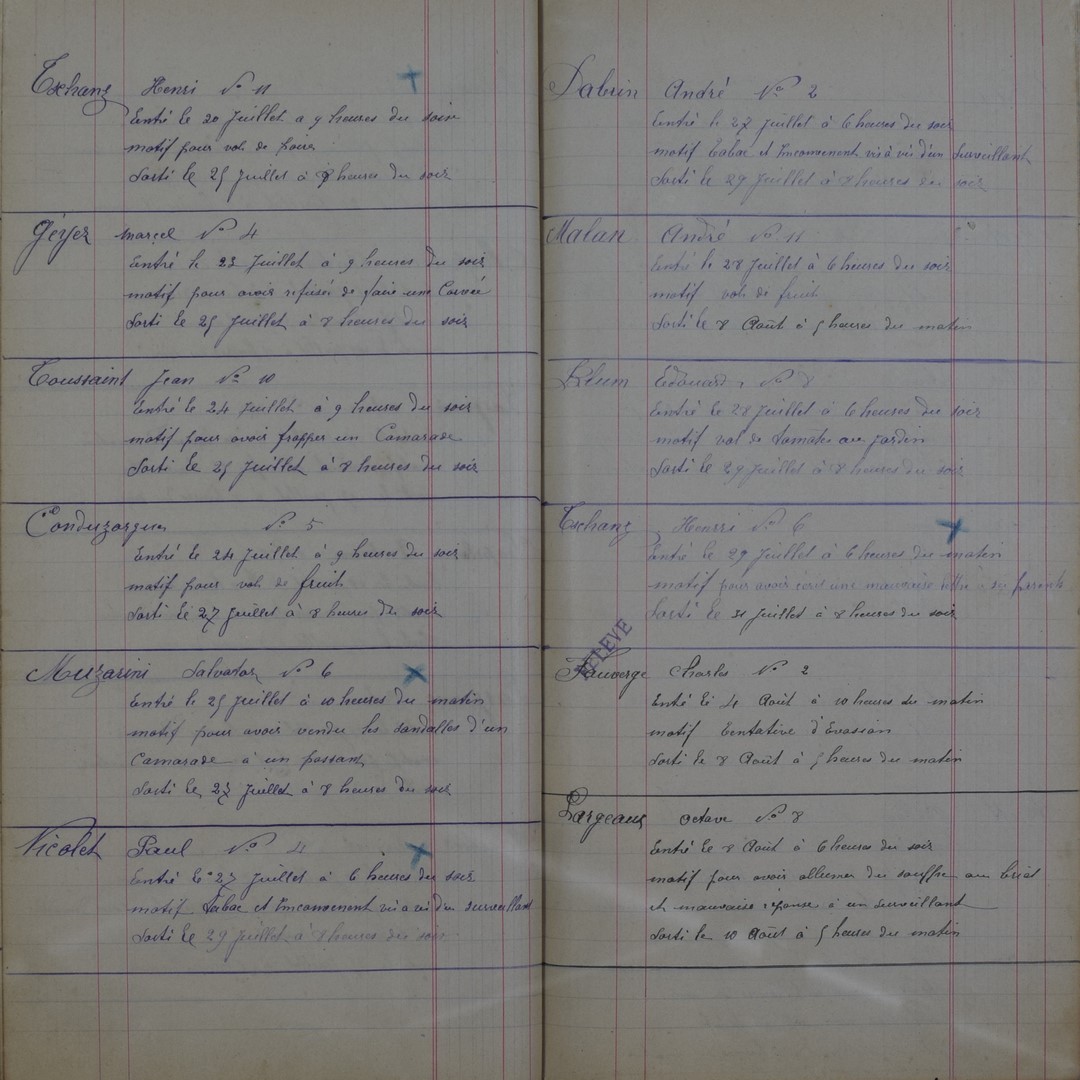 Tschanz Henri No 11
Entré le 20 Juillet a 9 heures du soir
motif pour vol de poire
Sorti le 25 Juillet à 8 heures du soir
Géyer marcel No 4
Entré le 23 Juillet à 9 heures du soir
motif pour avoir refusés de faire une Corvée
Sorti le 25 Juillet à 8 heures du soir
Toussaint Jean No 10
Entré le 24 Juillet à 9 heures du soir
motif pour avoir frapper un Camarade
Sorti le 25 Juillet à 8 heures du soir
No 5
Entré le 24 Juillet à 9 heures du soir
motif pour vol de fruit
Sorti le 27 Juillet à 8 heures du soir
Muzarini Salvator No 6
Entré le 25 Juillet à 10 heures du matin
motif pour avoir vendu les sandalles d'un
Camarade à un passant
Sorti le 27 Juillet à 8 heures du soir
Nicolet Paul No 4
Entré le 27 Juillet à 6 heures du soir
motif Tabac et Inconvenent vis a vis d'un surveillant
Sorti le 29 Juillet à 8 heures du soir
Dabrin André No 2
Entré le 27 Juillet à 6 heures du soir
motif Tabac et Inconvenent vis à vis d'un Surveillant
Sorti le 29 Juillet à 8 heures du soir
Malan André No 11
Entré le 28 Juillet à 6 heures du soir
motif vol de fruit
Sorti le 8 Août à 5 heures du matin
Edouard No 8
Entré le 28 Juillet à 6 heures du soir
motif vol de tomates au jardin
Sorti le 29 Juillet à 8 heures du soir
Tschanz Henrri No 6
Entré le 29 Juillet à 6 heures du matin
motif pour avoir écrit une mauvaise lettre à ses parents
Sorti le 31 Juillet à 8 heures du soir
RELEVE
Fauverge Charles No 2
Entré le 4 Août à 10 heures du matin
motif Tentative d'Evasion
Sorti le 8 Août à 5 heures du matin
Largeaus octave No 8
Entré le 8 Août à 6 heures du soir
motif pour avoir allumer du souffre au
et mauvaise réponse à un Surveillant
Sorti le 10 Août à 5 heures du matin